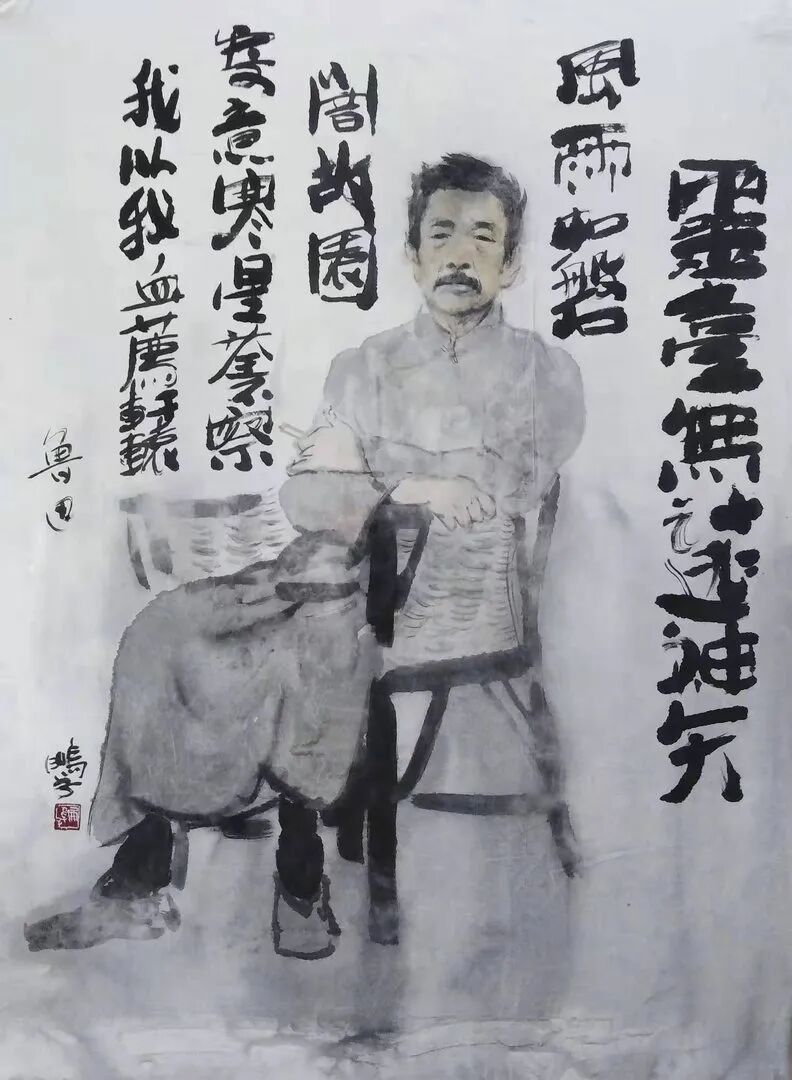 靈臺無計逃神矢
風雨如磐
闇故園
寄意寒星荃不察
我以我血薦軒轅
魯迅